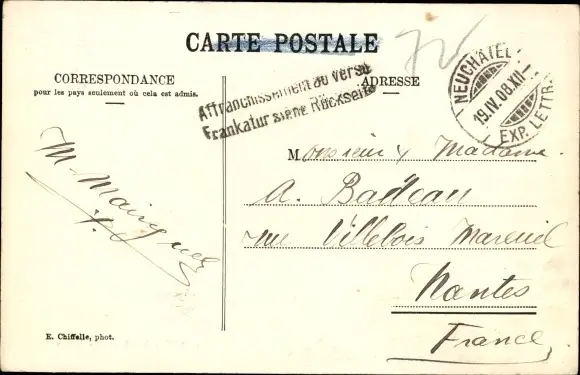 CARTE POSTALE
CORRESPONDANCE
pour les pays seulement où cela est admis.
Affranchissement au verso
Frankatur siehe Rückseite
ADRESSE
NEUCHÂTEL
19.IV.08.XII-
EXP. LETTR.
Monsieur & Madame
A. Badeau
rue Villebois Mareuil
Nantes
France
M.
E. Chiffelle, phot.